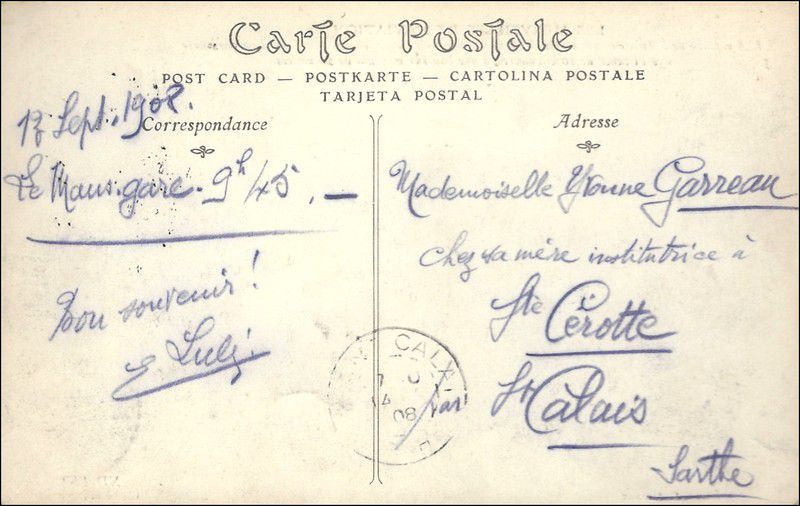 Carte Postale
POST CARD — POSTKARTE — CARTOLINA POSTALE
TARJETA POSTAL
Correspondance
Sept. 1908.
Le Mans-gare. 9h45. —
Bon souvenir!
E.
Adresse
Mademoiselle Yvonne Garreau
chez sa mère institutrice à
Ste Cérotte
St Calais
Sarthe
CALA
08